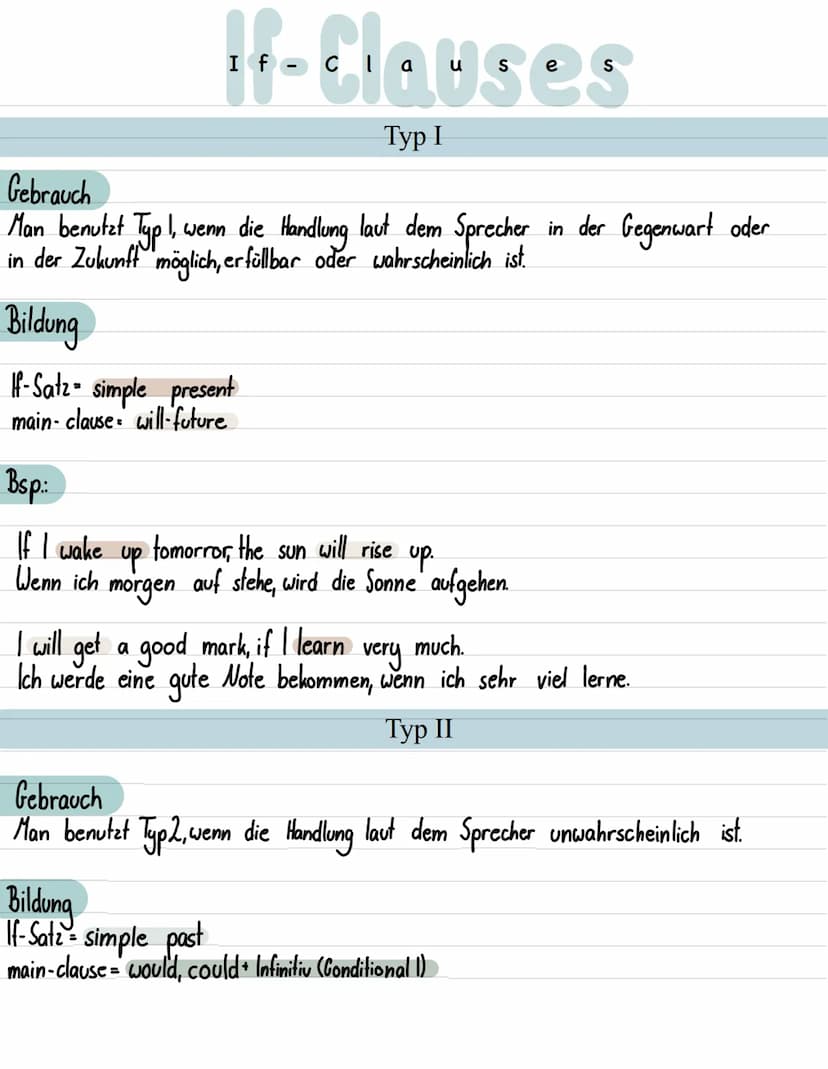 If-Clauses
If-Clauses
Typ I
Gebrauch
Man benutzt Typ 1, wenn die Handlung laut dem Sprecher in der Gegenwart oder
in der Zukunft möglich, erfüllbar oder wahrscheinlich ist.
Bildung
If-Satz= simple present
main-clause= will-future
Bsp.:
If I wake up tomorror, the sun will rise up.
Wenn ich morgen auf stehe, wird die Sonne aufgehen.
I will get a good mark, if I learn very much.
Ich werde eine gute Note bekommen, wenn ich sehr viel lerne.
Typ II
Gebrauch
Man benutzt Typ 2, wenn die Handlung laut dem Sprecher unwahrscheinlich ist.
Bildung
If-Satz= simple past
main-clause= would, could+ Infinitiv (Conditional I)